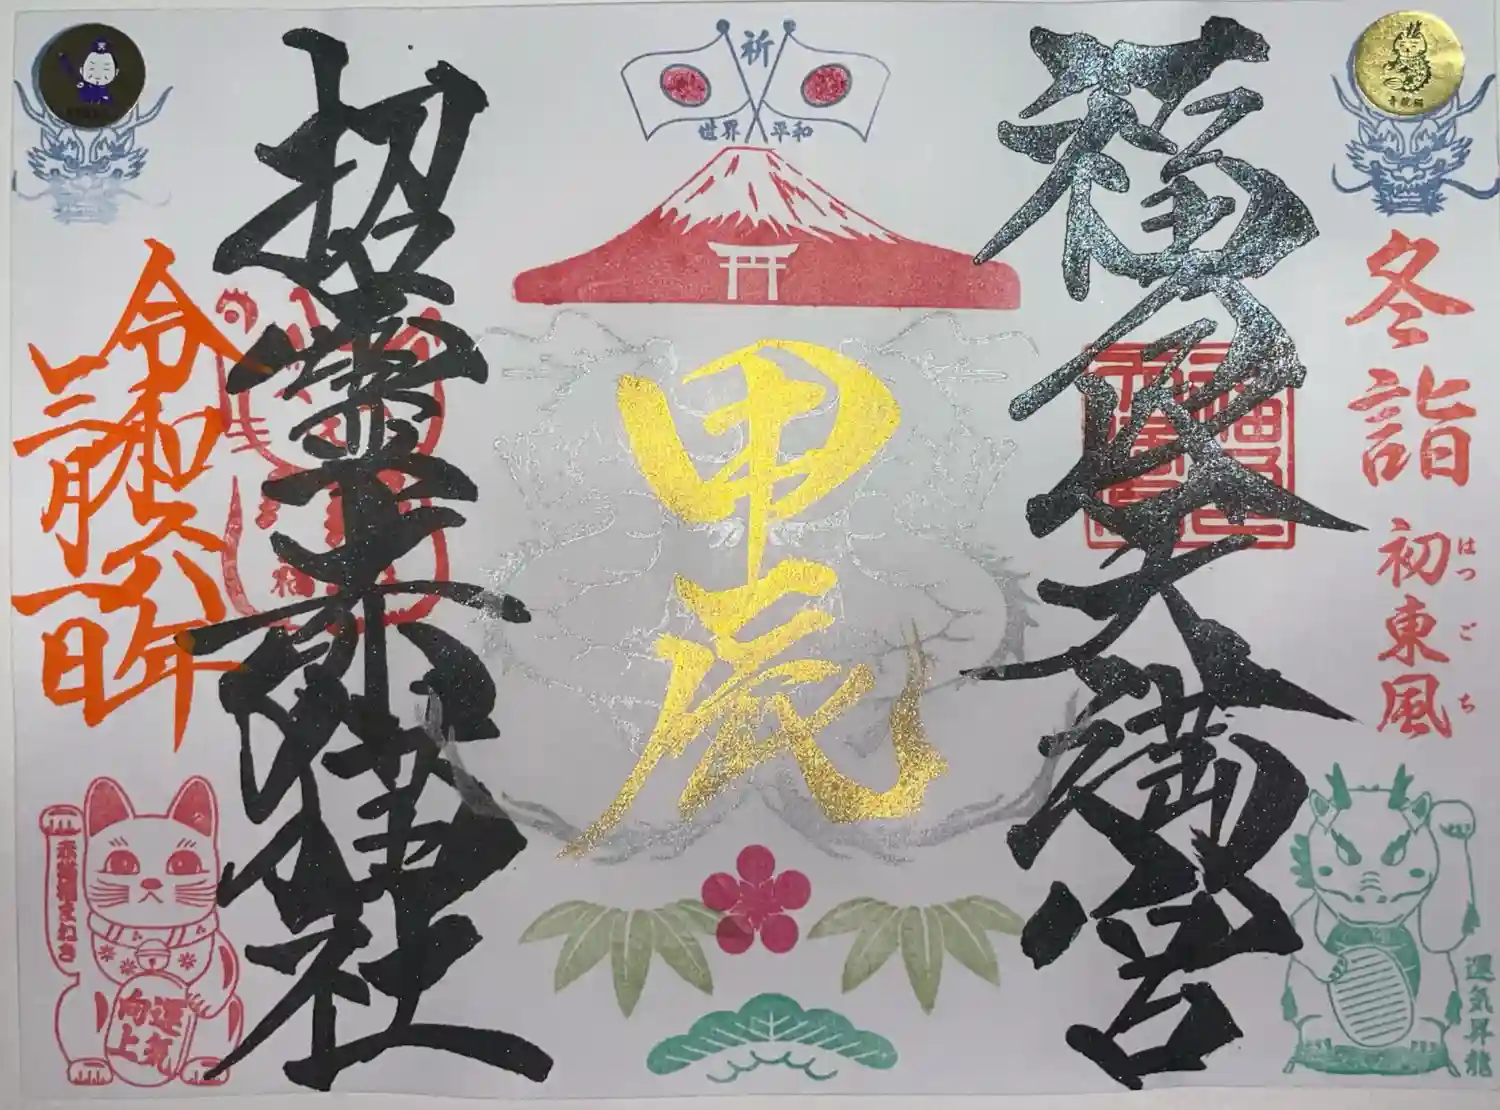 祈
世界 平和
福良天満宮
冬詣
初東風
はつ ご ち
甲辰
招霊赤猫社
令和六年
三月一日
運気
向上
運気昇龍